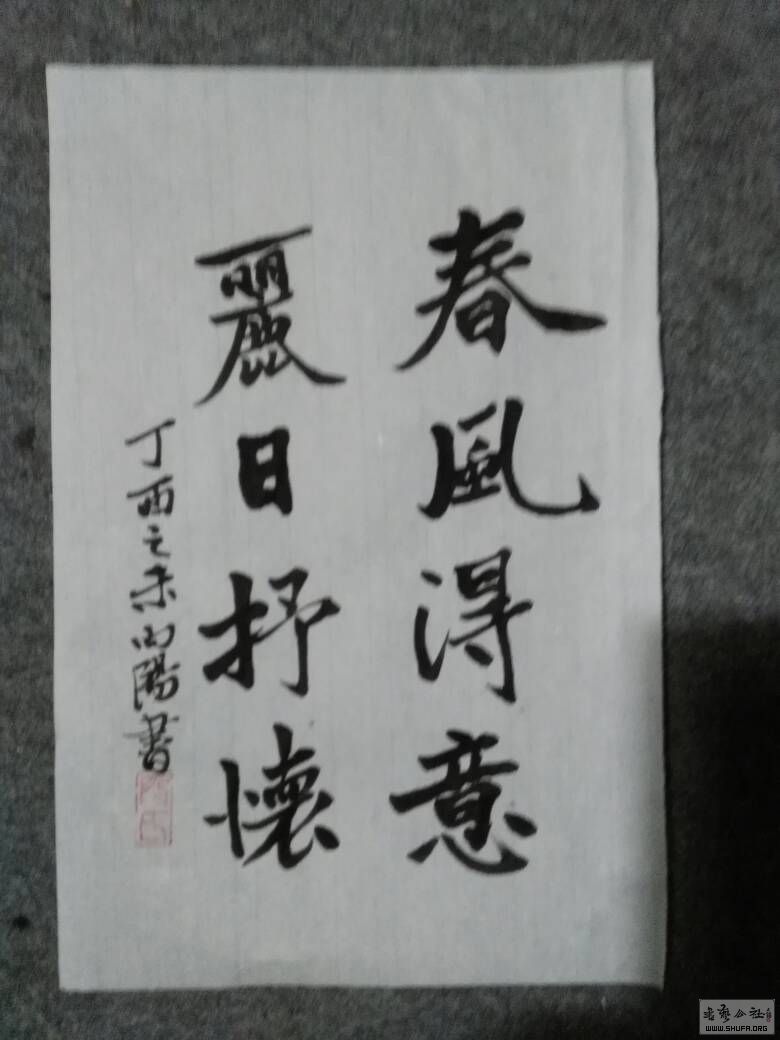 春風得意
麗日抒懷
丁酉之末向陽書
書藝公社
WWW.SHUFA.ORG